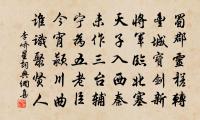 蜀郡靈槎轉
豐城寶劍新
將軍臨北塞
天子入西秦
未作三台輔
寧為五老臣
今宵潁川曲
誰識聚賢人
李嶠星胡興網集